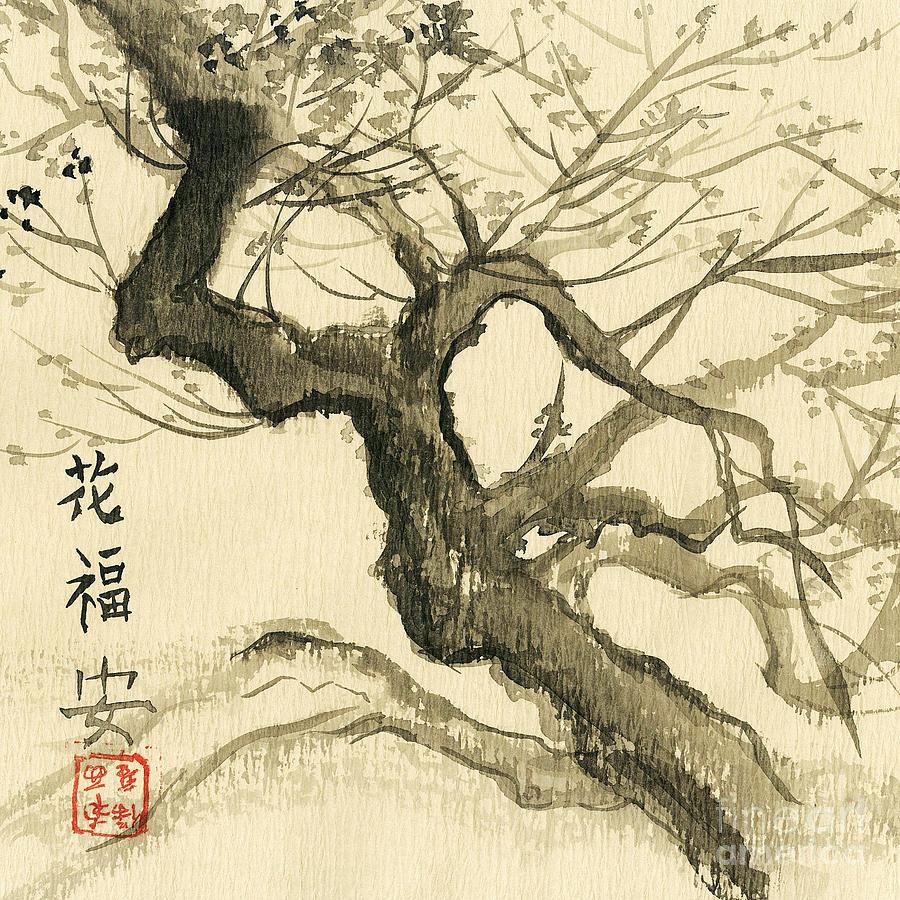 花
福
安
fine art
america